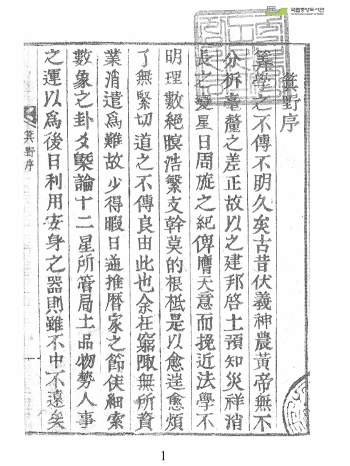 국립중앙도서관
箕野序
筭學之不傳不明久矣古昔伏羲神農黃帝無不
分拆毫釐之差正故以之建邦啓土預知災祥消
長之變星日周旋之紀俾膺天意而挽近法學不
明理數絕暝浩繁支幹莫的根柢是以愈逹愈煩
了無緊切道之不傳良由此也余在窮陬無所資
業消遣爲難故少得暇日並推曆家之節俟細索
數象之卦爻槩論十二星所管局土品物勢人事
之運以爲後日利用安身之器則雖不中不遠矣
箕野序
1